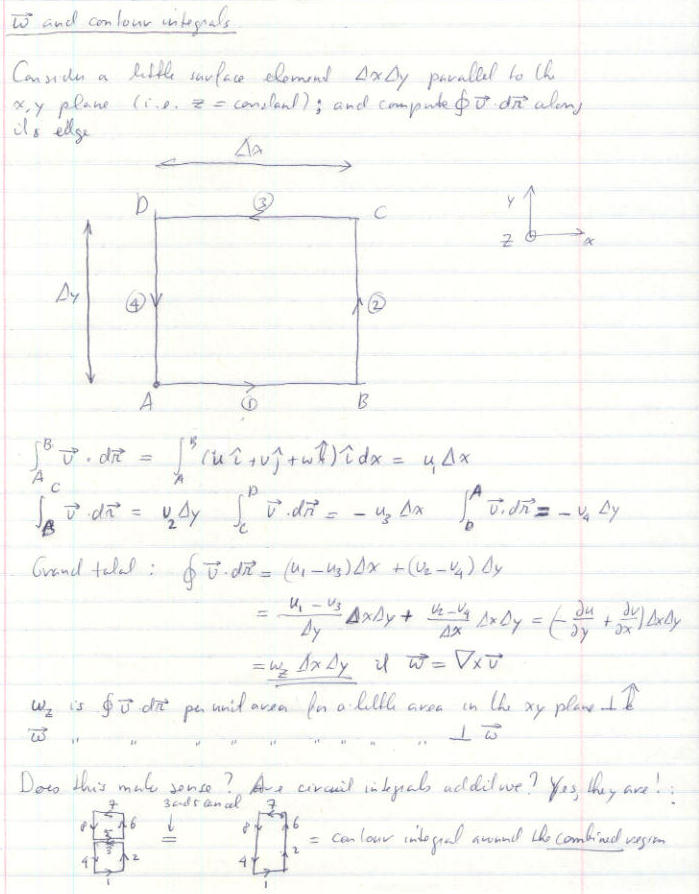 $\vec{w}$ and contour integrals.
Consider a little surface element ΔxΔy parallel to the
x,y plane (i.e. z = constant); and compute ∮ $\vec{v}$·d$\vec{r}$ along
its edge
Δx
D ③ C
y
z x
Δy ④ ②
A ① B
∫_A^B $\vec{v}$·d$\vec{r}$ = ∫_A^B (u î + v ĵ + w k̂) î dx = u₁ Δx
∫_B^C $\vec{v}$·d$\vec{r}$ = v₂ Δy ∫_C^D $\vec{v}$·d$\vec{r}$ = − u₃ Δx ∫_D^A $\vec{v}$·d$\vec{r}$ = − v₄ Δy
Grand total : ∮ $\vec{v}$·d$\vec{r}$ = (u₁ − u₃) Δx + (v₂ − v₄) Δy
= (u₁ − u₃)/Δy ΔxΔy + (v₂ − v₄)/Δx ΔxΔy = (− ∂u/∂y + ∂v/∂x) ΔxΔy
= w_z Δx Δy if $\vec{w}$ = ∇×$\vec{v}$
w_z is ∮ $\vec{v}$ d$\vec{r}$ per unit area for a little area in the xy plane ⊥ k̂
$\vec{w}$ " " " " " " " " " ⊥ $\vec{w}$
Does this make sense? Are circuit integrals additive? Yes, they are! :
7 3 and 5 cancel 7
8 6 ↓ 8 6
5
3 = = contour integral around the combined region
4 2 4 2
1 1